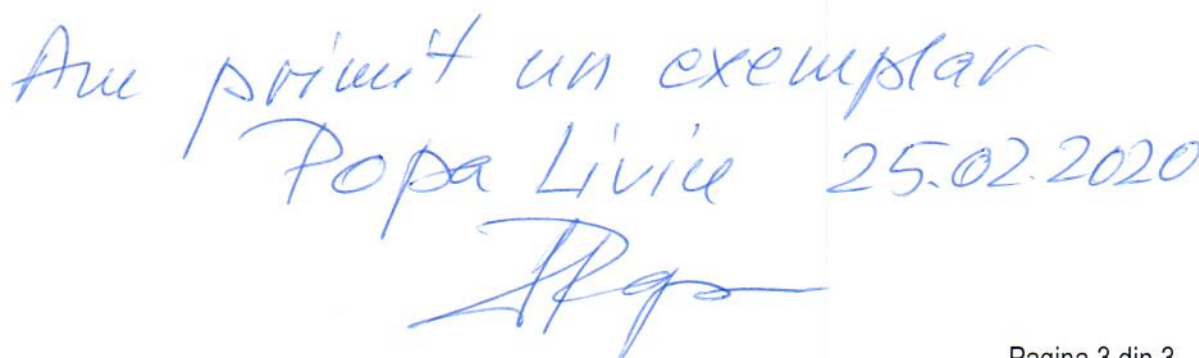 Am primit un exemplar
Popa Liviu 25.02.2020
Pagina 3 din 3